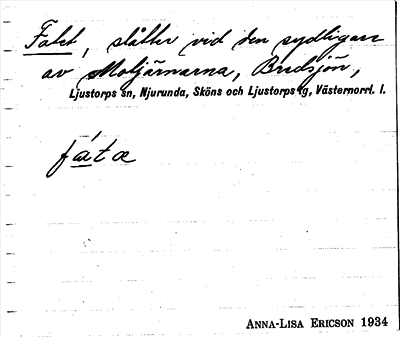 Fatet, slåtter vid den sydligare
av Motjärnarna, Bredsjön,
Ljustorps sn, Njurunda, Sköns och Ljustorps tg, Västernorrl. l.
fátæ
ANNA-LISA ERICSON 1934